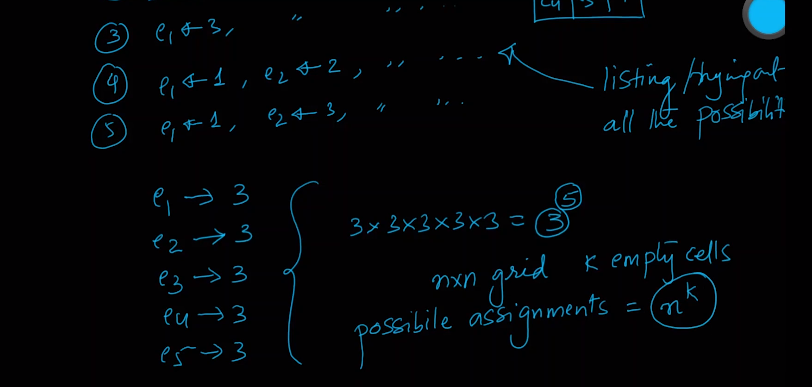 ③ e₁ ← 3, " " ...
④ e₁ ← 1, e₂ ← 2, " ...
⑤ e₁ ← 1, e₂ ← 3, " ...
listing/trying out
all the possibilit
e₁ → 3
e₂ → 3
e₃ → 3
e₄ → 3
e₅ → 3
3×3×3×3×3 = 3⁵
n×n grid k empty cells
possibile assignments = nᵏ